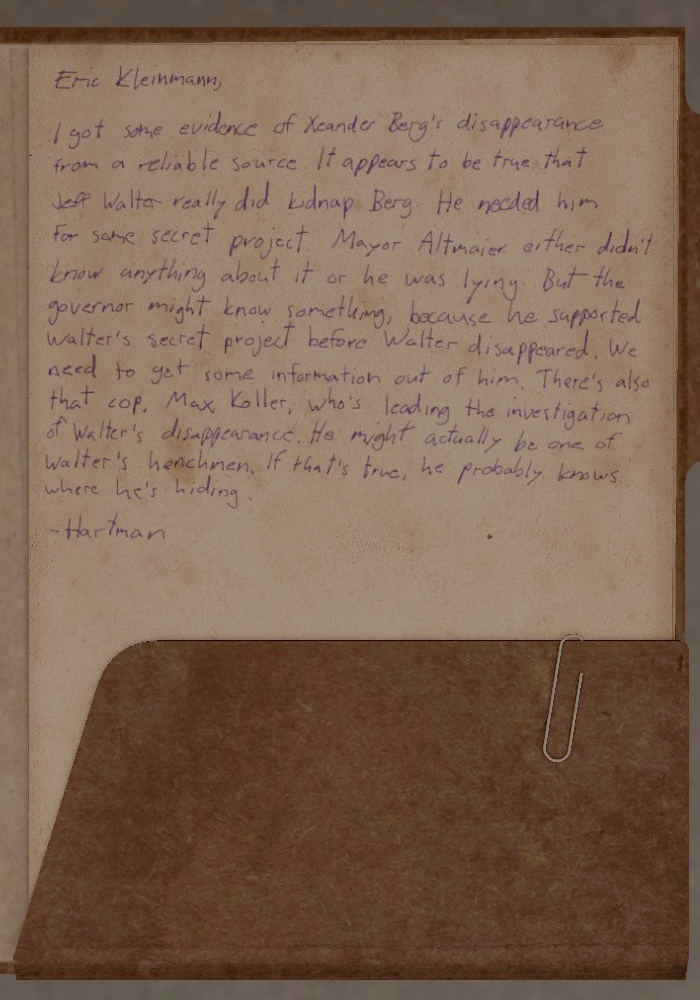 Eric Kleinmann,
I got some evidence of Xeander Berg's disappearance
from a reliable source. It appears to be true that
Jeff Walter really did kidnap Berg. He needed him
for some secret project. Mayor Altmaier either didn't
know anything about it or he was lying. But the
governor might know something, because he supported
Walter's secret project before Walter disappeared. We
need to get some information out of him. There's also
that cop, Max Koller, who's leading the investigation
of Walter's disappearance. He might actually be one of
Walter's henchmen. If that's true, he probably knows
where he's hiding.
-Hartman